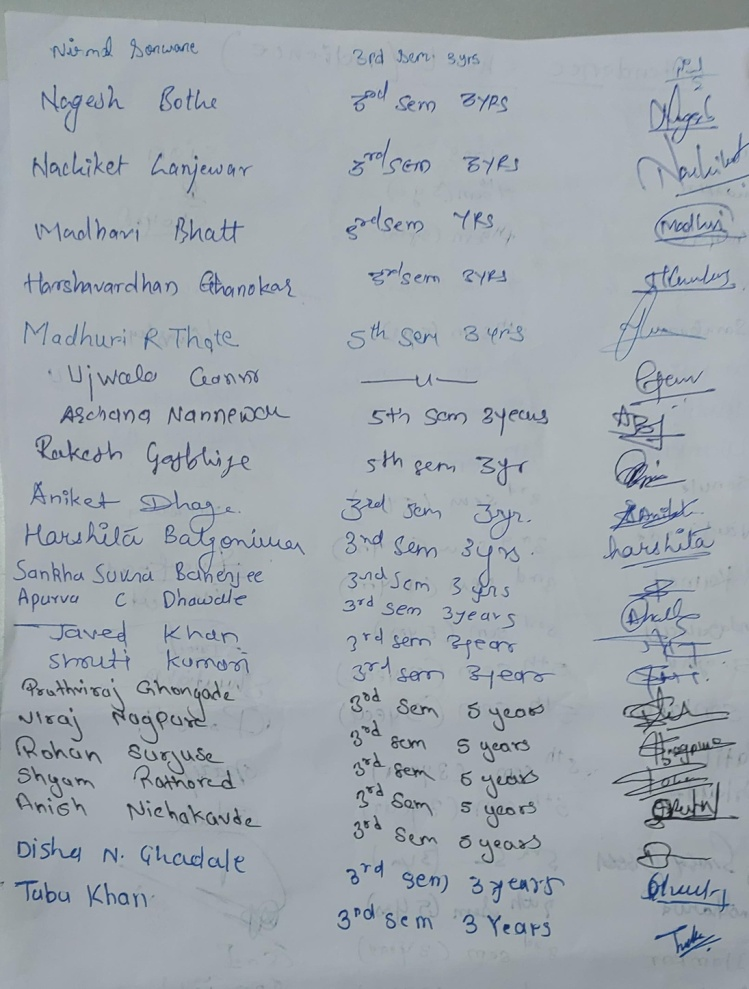 Nirmal Sonwane 3rd Sem 3yrs
Nagesh Bothe 3rd Sem 3YRS Nagesh
Nachiket Lanjewar 3rd Sem 3YRS Nachiket
Madhavi Bhatt 3rd sem YRS Madhvi
Harshavardhan Ghanokar 3rd sem 3YRS
Madhuri R Thote 5th Sem 3 yrs
Ujwala —u—
Archana Nannewar 5th Sem 3years
Rakesh Gajbhiye 5th sem 3yr
Aniket Dhage. 3rd Sem 3yr. Aniket
Harshita 3rd Sem 3yrs. harshita
Sankha Suvra Banerjee 3rd Sem 3 yrs
Apurva C Dhawale 3rd sem 3years
Javed Khan 3rd sem 3year
Shruti Kumari 3rd sem 3year
Pruthviraj Ghongade 3rd Sem 5 years
Niraj Nagpure 3rd sem 5 years
Rohan Surjuse 3rd sem 5 years
Shyam Rathored 3rd Sem 5 years
Anish Nichakavde 3rd Sem 5 years
Disha N. Ghadale 3rd Sem 3years
Tabu Khan 3rd Sem 3 Years